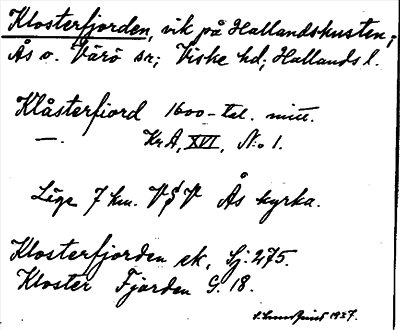 Klosterfjorden, vik på Hallandskusten;
Ås o. Värö sn; Viske hd; Hallands l.
Klåsterfiord 1600-tal. mitt.
— KrA, XVI, N:o 1.
Läge 7 km. VSV Ås kyrka.
Klosterfjorden ek, Sj. 275.
Kloster Fjorden G. 18.
1927.